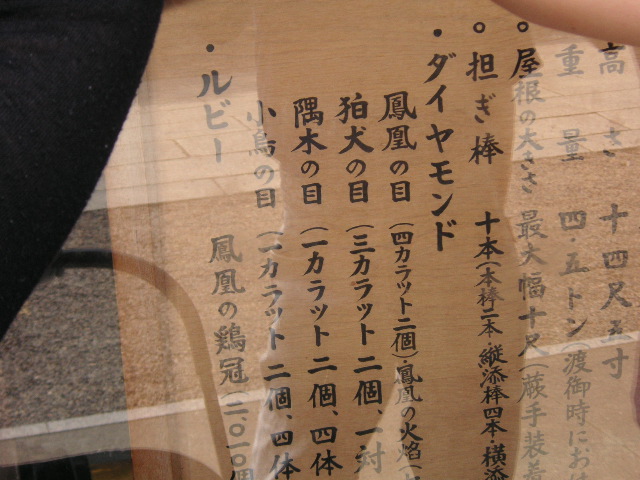 高さ 十四尺五寸
重量 四・五トン(渡御時にお
。屋根の大きさ 最大幅十尺(蕨手装着
。担ぎ棒 十本(本棒二本・縦添棒四本・横添
・ダイヤモンド
鳳凰の目(四カラット二個)・鳳凰の火焔(
狛犬の目(三カラット二個、一対
隅木の目(一カラット二個、四体
小鳥の目(一カラット二個、四体
・ルビー 鳳凰の鶏冠(二〇一〇個